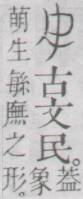 古文民。葢象
萌生緐廡之形。